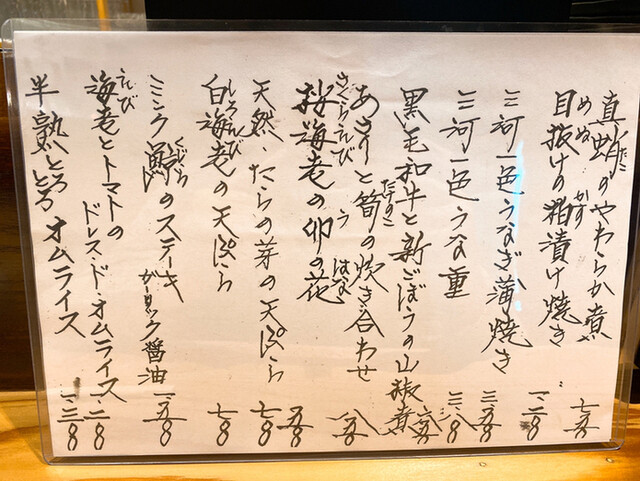 だこ
真蛸のやわらか煮
めぬ かす
目抜けの粕漬け焼き 一.二〇〇
三河一色うなぎ蒲焼き
三河一色うな重
黒毛和牛と新ごぼうの山椒煮
たけのこ
あさりと筍の炊き合わせ
さくらえび う はな
桜海老の卯の花
天然.たらの芽の天ぷら 七〇〇
しろえび
白海老の天ぷら 七〇〇
くじら
ミンク鯨のステーキ
ガーリック醤油
えび
海老とトマトの
ドレス・ド・オムライス 一.二〇〇
半熟とろとろオムライス 一.三〇〇